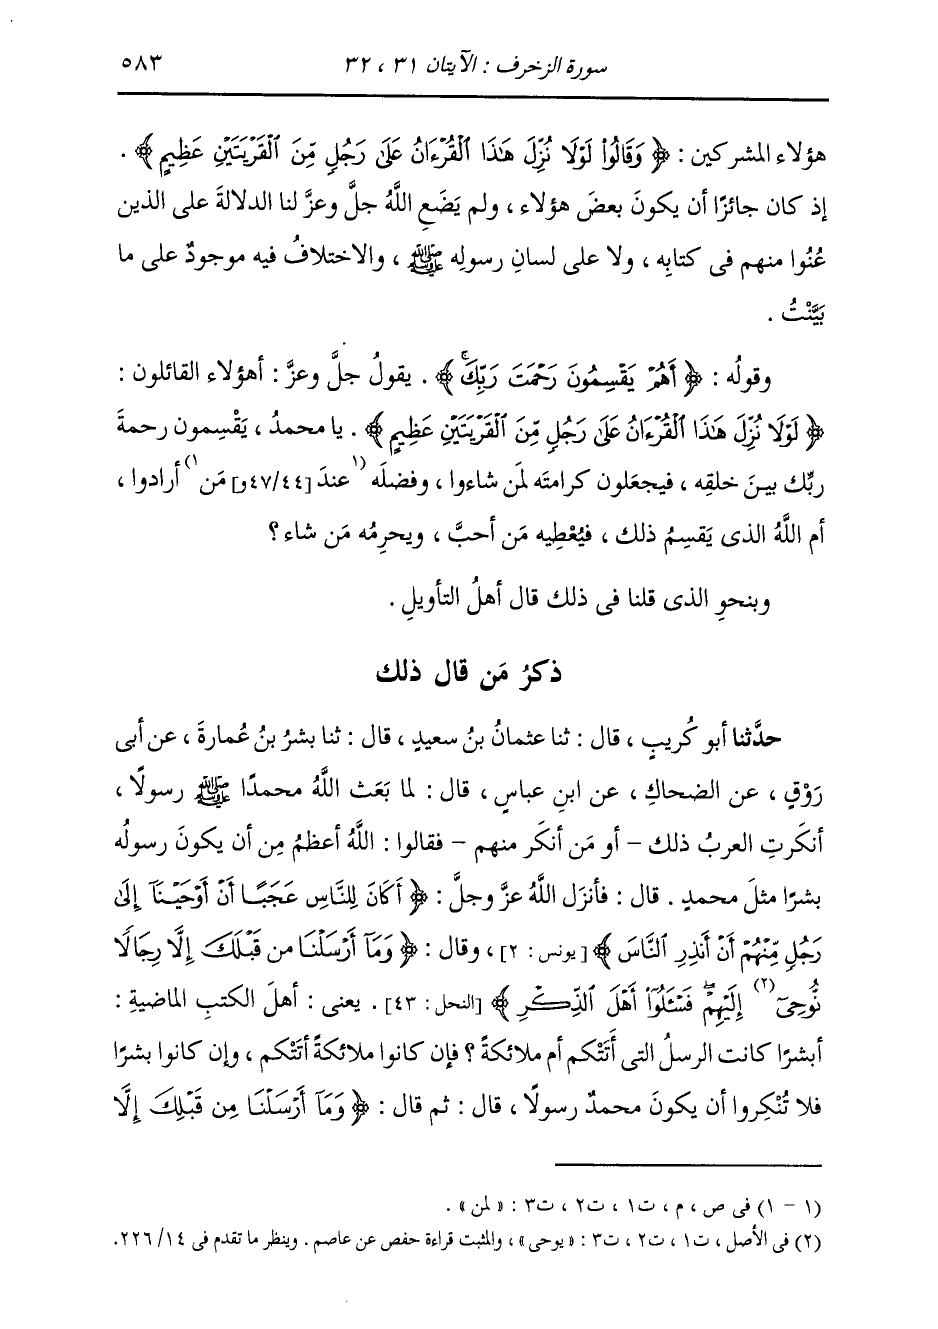 سورة الزخرف : الآيتان ٣١ ، ٣٢ ٥٨٣
هؤلاء المشركين : ﴿ وَقَالُوا۟ لَوْلَا نُزِّلَ هَٰذَا ٱلْقُرْءَانُ عَلَىٰ رَجُلٍ مِّنَ ٱلْقَرْيَتَيْنِ عَظِيمٍ ﴾ .
إذ كان جائزًا أن يكونَ بعضَ هؤلاء ، ولم يَضَعِ اللَّهُ جلَّ وعزَّ لنا الدلالةَ على الذين
عُنُوا منهم فى كتابِه ، ولا على لسانِ رسولِه ﷺ ، والاختلافُ فيه موجودٌ على ما
بَيَّنْتُ .
وقولُه : ﴿ أَهُمْ يَقْسِمُونَ رَحْمَتَ رَبِّكَۚ ﴾ . يقولُ جلَّ وعزَّ : أهؤلاء القائلون :
﴿ لَوْلَا نُزِّلَ هَٰذَا ٱلْقُرْءَانُ عَلَىٰ رَجُلٍ مِّنَ ٱلْقَرْيَتَيْنِ عَظِيمٍ ﴾ . يا محمدُ ، يَقْسِمون رحمةَ
ربِّك بينَ خلقِه ، فيجعَلون كرامتَه لمَن شاءوا ، وفضلَه (١عندَ [٤٧/٤٤و] مَن١) أرادوا ،
أم اللَّهُ الذى يَقسِمُ ذلك ، فيُعْطِيه مَن أحبَّ ، ويحرِمُه مَن شاء ؟
وبنحوِ الذى قلنا فى ذلك قال أهلُ التأويلِ .
ذكرُ مَن قال ذلك
حدَّثنا أبو كُريبٍ ، قال : ثنا عثمانُ بنُ سعيدٍ ، قال : ثنا بشرُ بنُ عُمارةَ ، عن أبى
رَوْقٍ ، عن الضحاكِ ، عن ابنِ عباسٍ ، قال : لما بَعَث اللَّهُ محمدًا ﷺ رسولًا ،
أنكَرتِ العربُ ذلك - أو مَن أنكَر منهم - فقالوا : اللَّهُ أعظمُ مِن أن يكونَ رسولُه
بشرًا مثلَ محمدٍ . قال : فأنزَل اللَّهُ عزَّ وجلَّ : ﴿ أَكَانَ لِلنَّاسِ عَجَبًا أَنْ أَوْحَيْنَآ إِلَىٰ
رَجُلٍ مِّنْهُمْ أَنْ أَنذِرِ ٱلنَّاسَ ﴾ [ يونس : ٢ ] ، وقال : ﴿ وَمَآ أَرْسَلْنَا من قَبْلَكَ إِلَّا رِجَالًا
نُّوحِىٓ (٢) إِلَيْهِمْۖ فَسْـَٔلُوٓا۟ أَهْلَ ٱلذِّكْرِ ﴾ [النحل : ٤٣] . يعنى : أهلَ الكتبِ الماضيةِ :
أبشرًا كانت الرسلُ التى أَتَتْكم أم ملائكةً ؟ فإن كانوا ملائكةً أتَتْكم ، وإن كانوا بشرًا
فلا تُنْكِروا أن يكونَ محمدٌ رسولًا ، قال : ثم قال : ﴿ وَمَآ أَرْسَلْنَا مِن قَبْلِكَ إِلَّا
(١ - ١) فى ص ، م ، ت١ ، ت٢ ، ت٣ : « لمن » .
(٢) فى الأصل ، ت١ ، ت٢ ، ت٣ : « يوحى » ، والمثبت قراءة حفص عن عاصم . وينظر ما تقدم فى ١٤/ ٢٢٦.